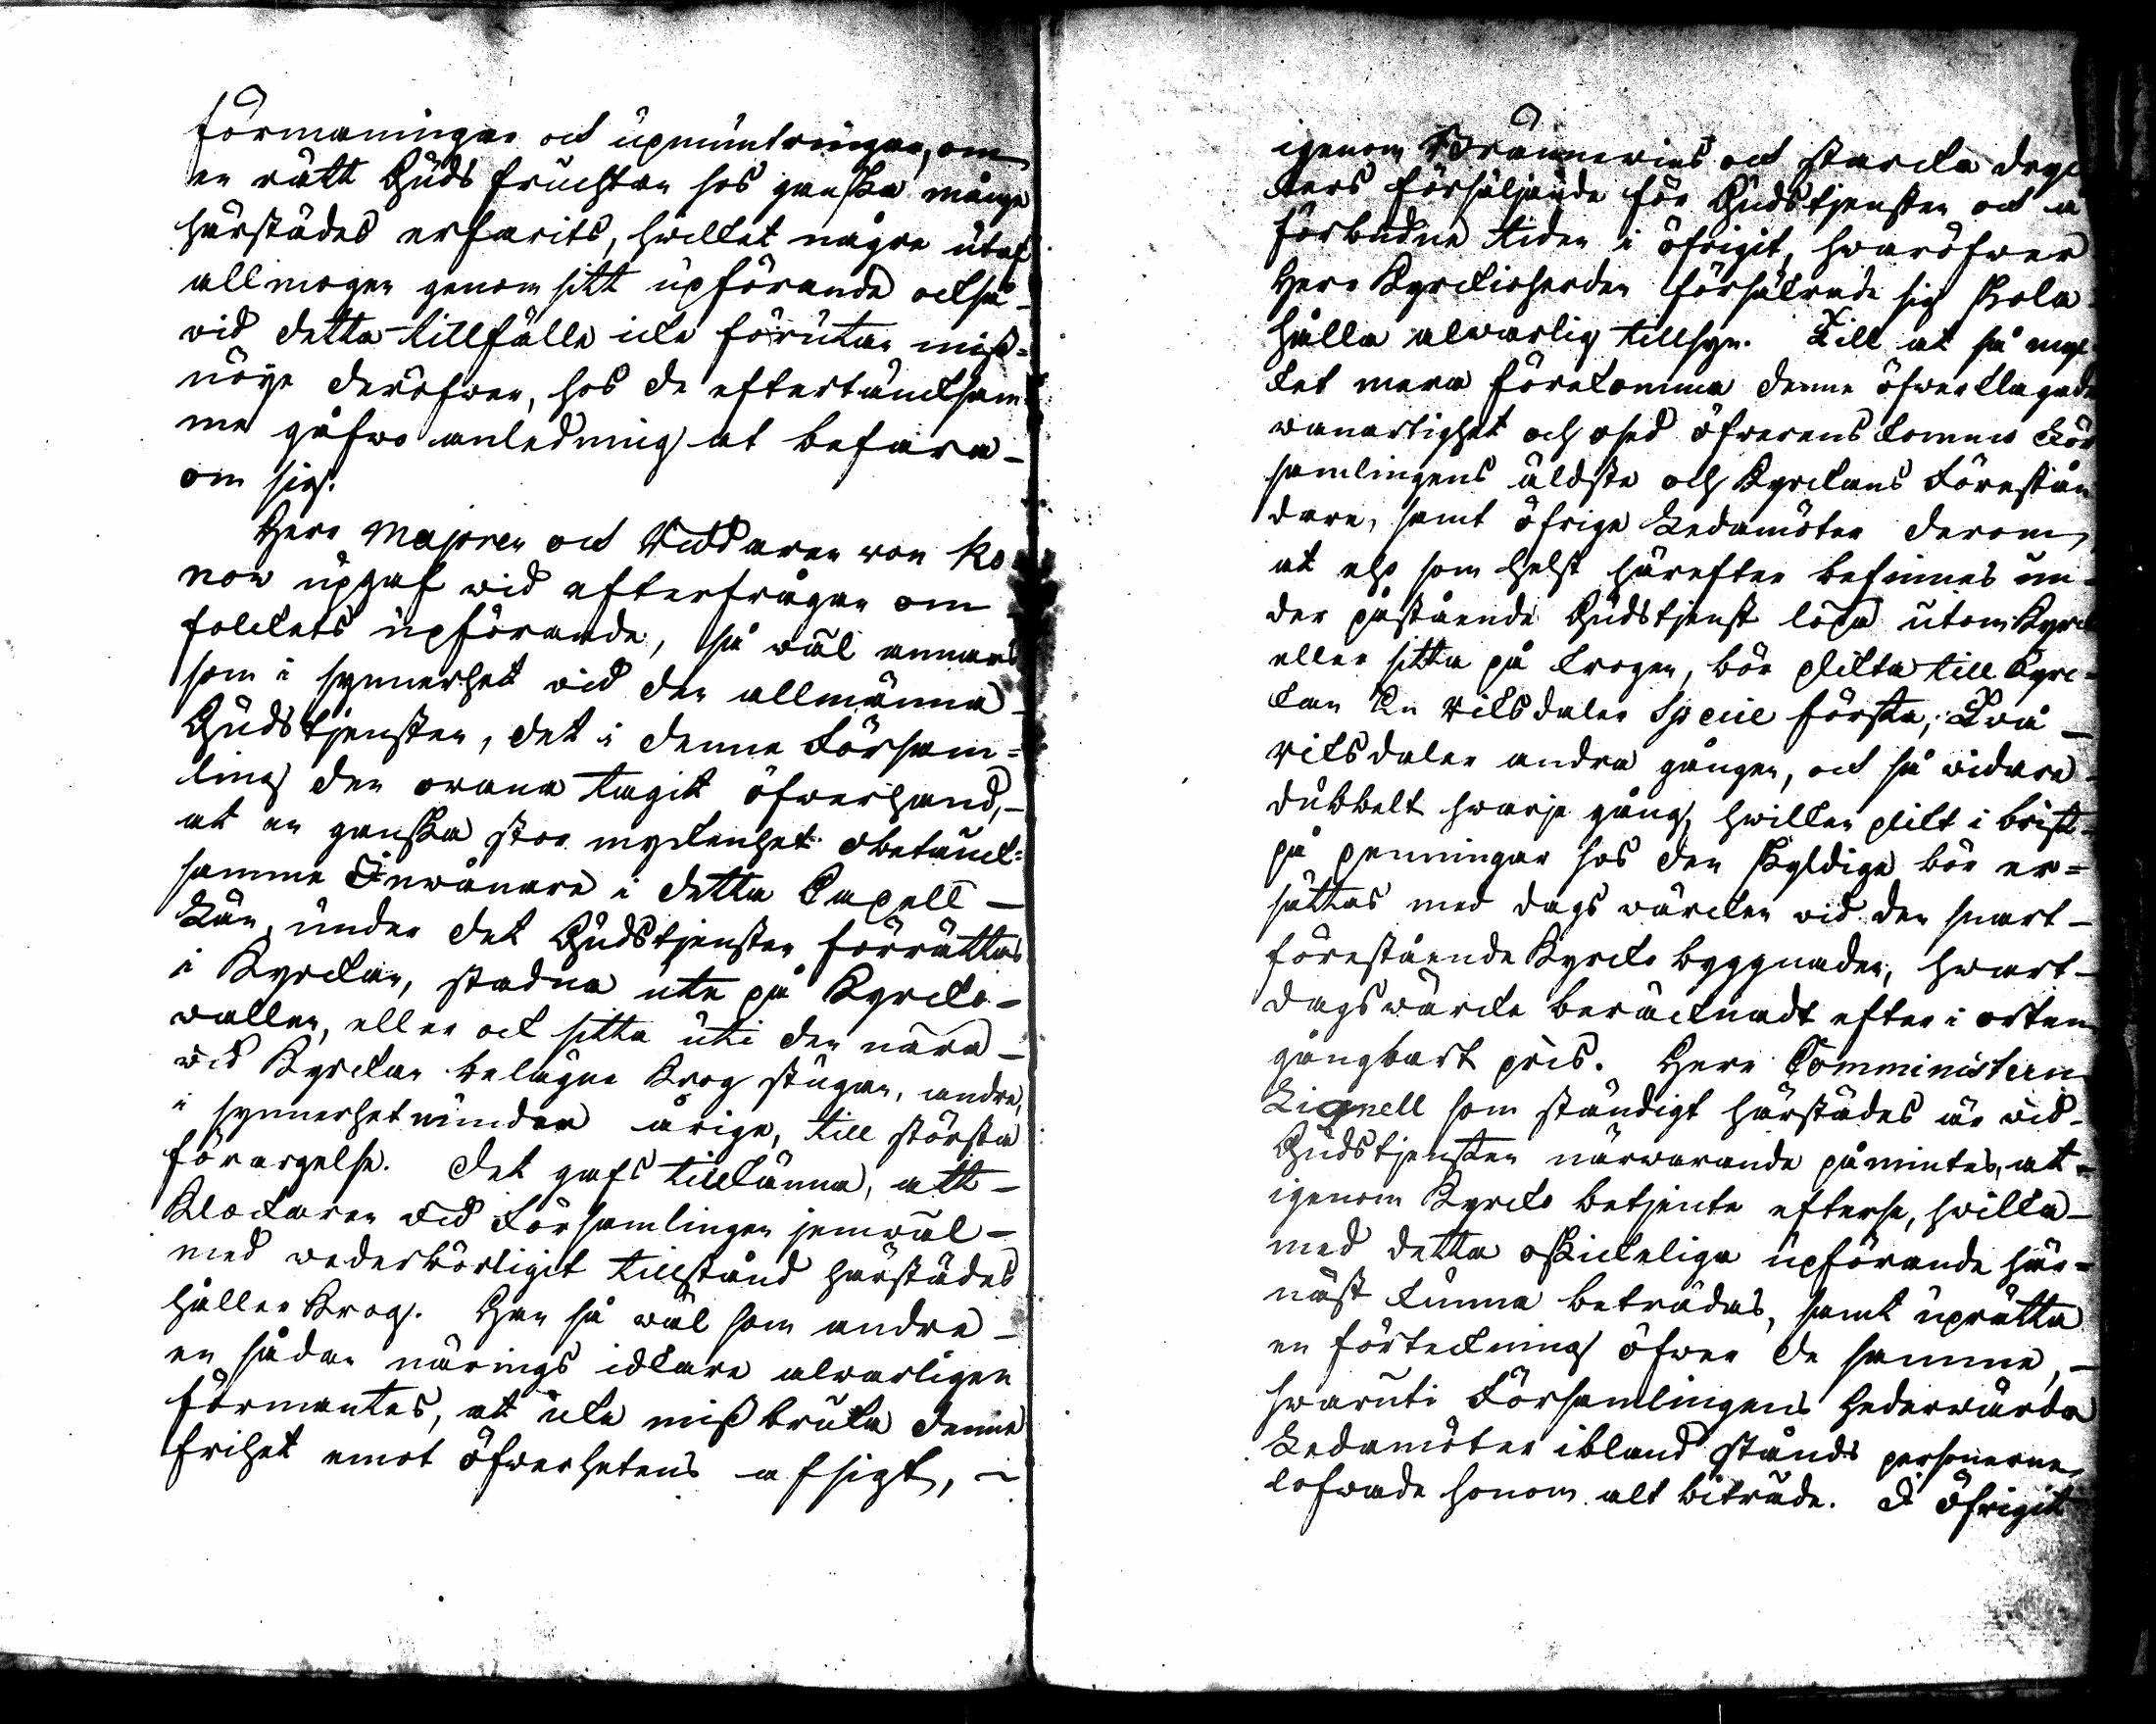 förmaningar och upmuntringar, om
en rätt Guds fruchtan hos ganska månge
härstädes erfarits, hwilket några utaf
allmogen genom sitt upförande också
wid detta tillfälle icke förutan miss=
nöje deröfwer, hos de eftertäncksam=
me gåfwo anledning at befara
om sig.
Herr Majoren och Riddaren von Ko
now upgaf wid efterfrågan om
folckets upförande, så wäl annars
som i synnerhet wid den allmänna
Gudstjensten, det i denne Försam=
ling den owana tagit öfwerhand,
at en ganska stor myckenhet obetänck=
samme Inwånare i detta Capell
Län, under det Gudstjensten förrättas
i Kyrckan, stadna ute på Kyrcko=
wallen, eller ock sitta uti den nära
wid Kyrckan belägne Krog stugan, andre,
i synnerhet minder årige, till största
förargelse. Det gafs tillkänna, att
Klockaren wid Församlingen jemwäl
med wederbörligit tillstånd härstädes
håller Krog. Han så wäl som andre
en sådan närings idkare alwarligen
förmantes, at icke missbruka denne
frihet emot öfwerhetens afsigt,
igenom Brännwins och starcka dryc
kers försäljande för Gudstjensten och a
förbudne tider i öfrigit, hwaröfwer
Herr Kyrckioherden försäkrade sig skola
hålla alwarlig tillsyn. Till at så myc
ket mera förekomma denne öfwerklagade
wanartighet och osed öfverens kommo För
samlingens äldste och Kyrckans Förestån
dare, samt öfrige Ledamöter derom,
at eho som helst härefter befinnes un=
der påstående Gudstjenst löpa utom Kyrck
eller sitta på krogen, bör plickta till Kyrc=
kan En riksdaler Specie första, Twå
riksdaler andra gången, och så widare
dubbelt hwarje gång, hwilken plickt i brist
på penningar hos den skyldige bör er=
sättas med dags wärcken wid den snart
förestående Kyrcko byggnaden, hwart
dagswärcke beräcknadt efter i orten
gångbart pris. Herr Comministern
Lignell som ständigt härstädes är wid
Gudstjensten närwarande påmintes, at
igenom Kyrcko betjente efterse, hwilka
med detta oskickeliga upförande här=
näst kunna beträdas, samt uprätta
en förteckning öfwer de samme,
hwaruti Församlingens hederwärda
Ledamöter ibland stånds personerne
lofwade honom alt biträde. I öfrigit